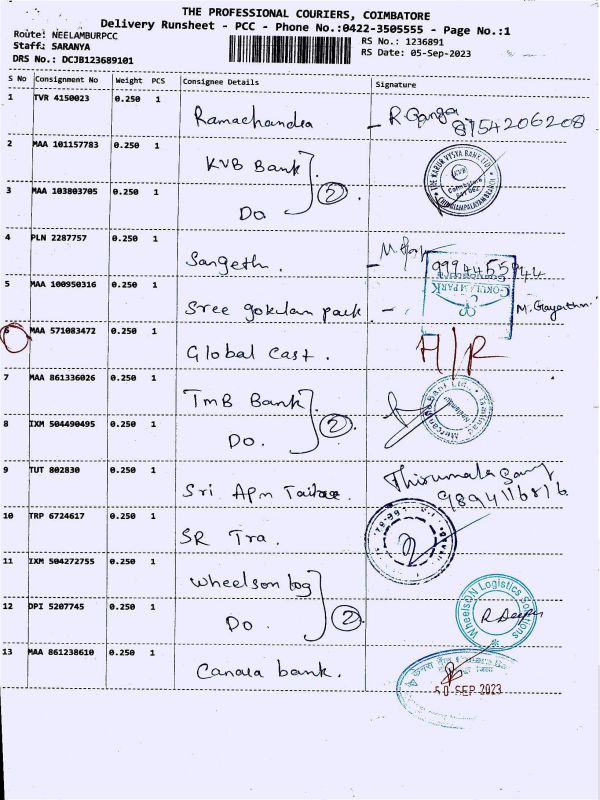 THE PROFESSIONAL COURIERS, COIMBATORE
Delivery Runsheet - PCC - Phone No.:0422-3505555 - Page No.:1
Route: NEELAMBURPCC
Staff: SARANYA
DRS No.: DCJB123689101
RS No.: 1236891
RS Date: 05-Sep-2023
S No Consignment No Weight PCS Consignee Details Signature
1 TVR 4150023 0.250 1 Ramachandra R. Ganga
8754206208
2 MAA 101157783 0.250 1 KVB Bank THE KARUR VYSYA BANK LTD
3 MAA 103803705 0.250 1 Do 2
4 PLN 2287757 0.250 1 Sangeth.
9994455944
5 MAA 100950316 0.250 1 Sree gokulam park - GOKULAM PARK M. Gayathri
6 MAA 571083472 0.250 1 Global Cast. A/R
7 MAA 861336026 0.250 1 TMB Bank
8 IXM 504490495 0.250 1 Do. 2
9 TUT 802830 0.250 1 Sri. Apm
9894116816
10 TRP 6724617 0.250 1 SR Tra.
11 IXM 504272755 0.250 1 Wheelson log
12 DPI 5207745 0.250 1 Do. 2 WheelsON Logistics Solutions
13 MAA 861238610 0.250 1 Canara bank.
SEP 2023